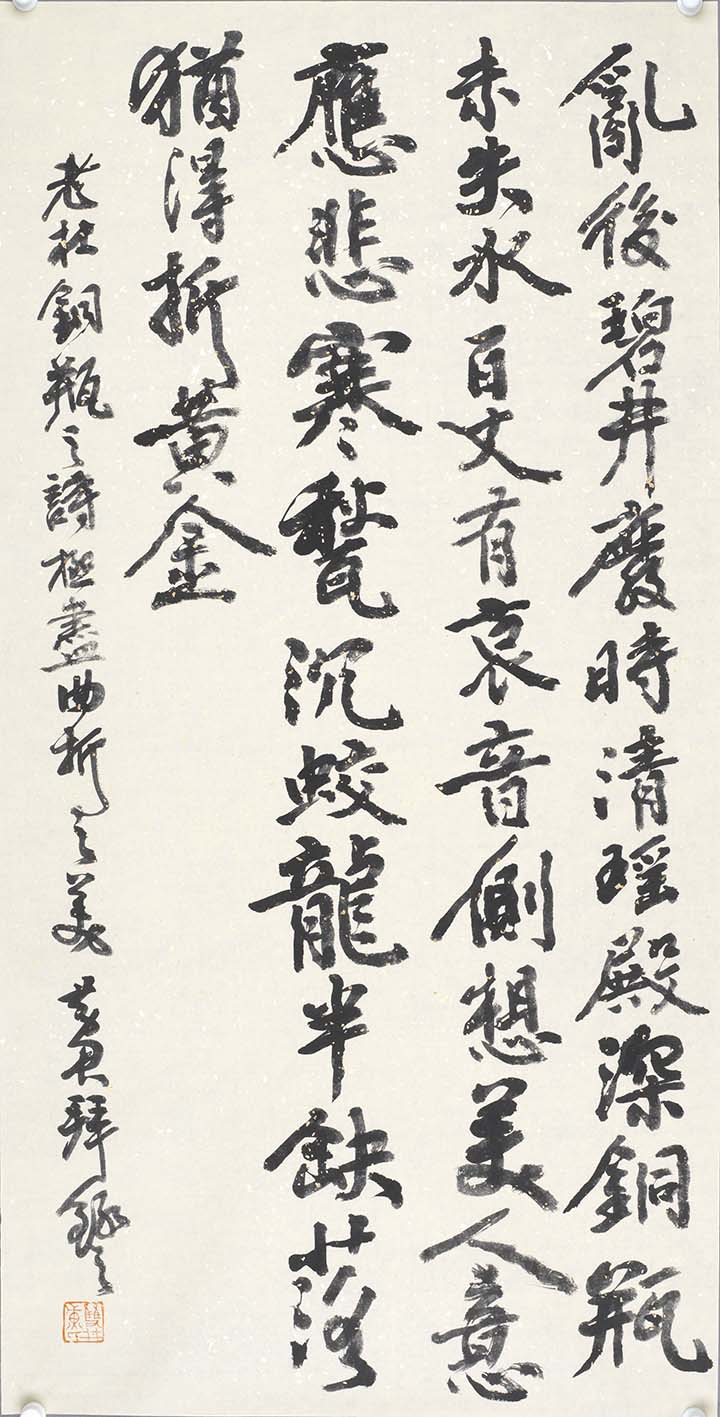 亂後碧井廢時清瑤殿深銅瓶
未失水百丈有哀音側想美人意
應悲寒甃沉蛟龍半缺落
猶得折黃金
老杜銅瓶之詩極盡曲折之美 黃君拜錄之